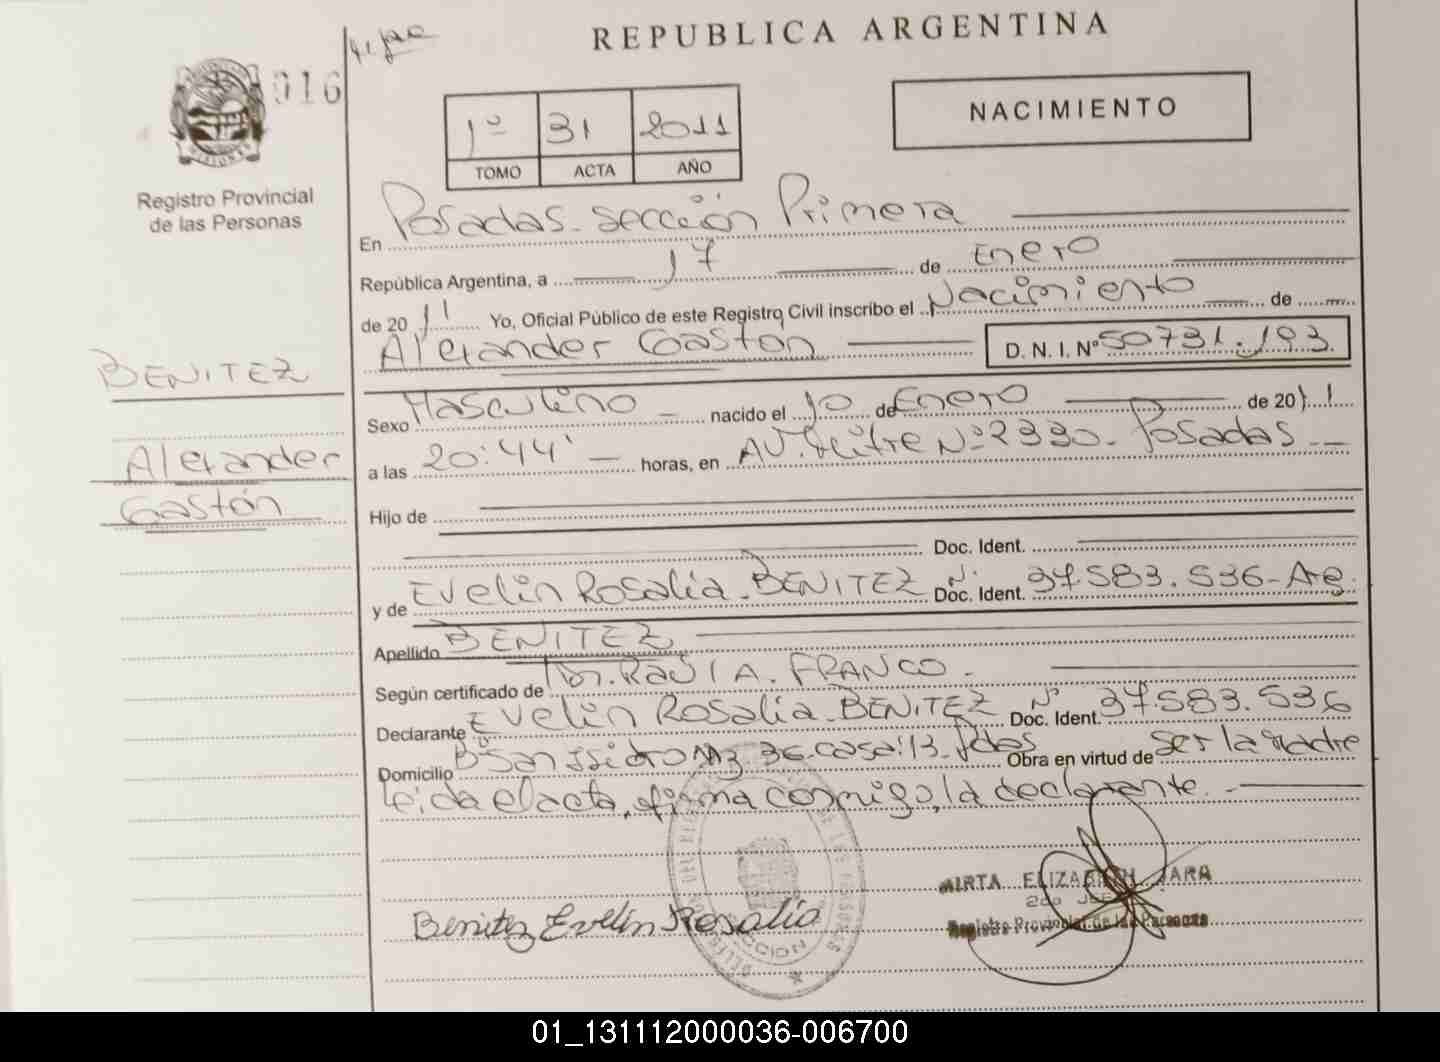 REPUBLICA ARGENTINA
016
Registro Provincial
de las Personas
1º 31 2011
TOMO ACTA AÑO
NACIMIENTO
En Posadas - sección Primera
República Argentina, a 17 de Enero
de 20 11 Yo, Oficial Público de este Registro Civil inscribo el Nacimiento de
Alexander Gastón D. N. I. Nº 50731.193
BENITEZ
Alexander
Gastón
Sexo Masculino nacido el 10 de Enero de 20 11
a las 20:44' horas, en AV. Mitre Nº 2330 - Posadas
Hijo de
Doc. Ident.
y de Evelin Rosalia - BENITEZ Doc. Ident. Nº 37.583.536 - Arg.
Apellido BENITEZ
Según certificado de Dr. RAUL A. FRANCO.
Declarante Evelin Rosalia - BENITEZ Doc. Ident. Nº 37.583.536
Domicilio Bº San Isidro Mz 36 - casa: 13 - Pdas Obra en virtud de ser la madre
leida el acta, firma conmigo, la declarante. -
MIRTA ELIZABETH JARA
Registro Provincial de las Personas
Benitez Evelin Rosalia
01_131112000036-006700